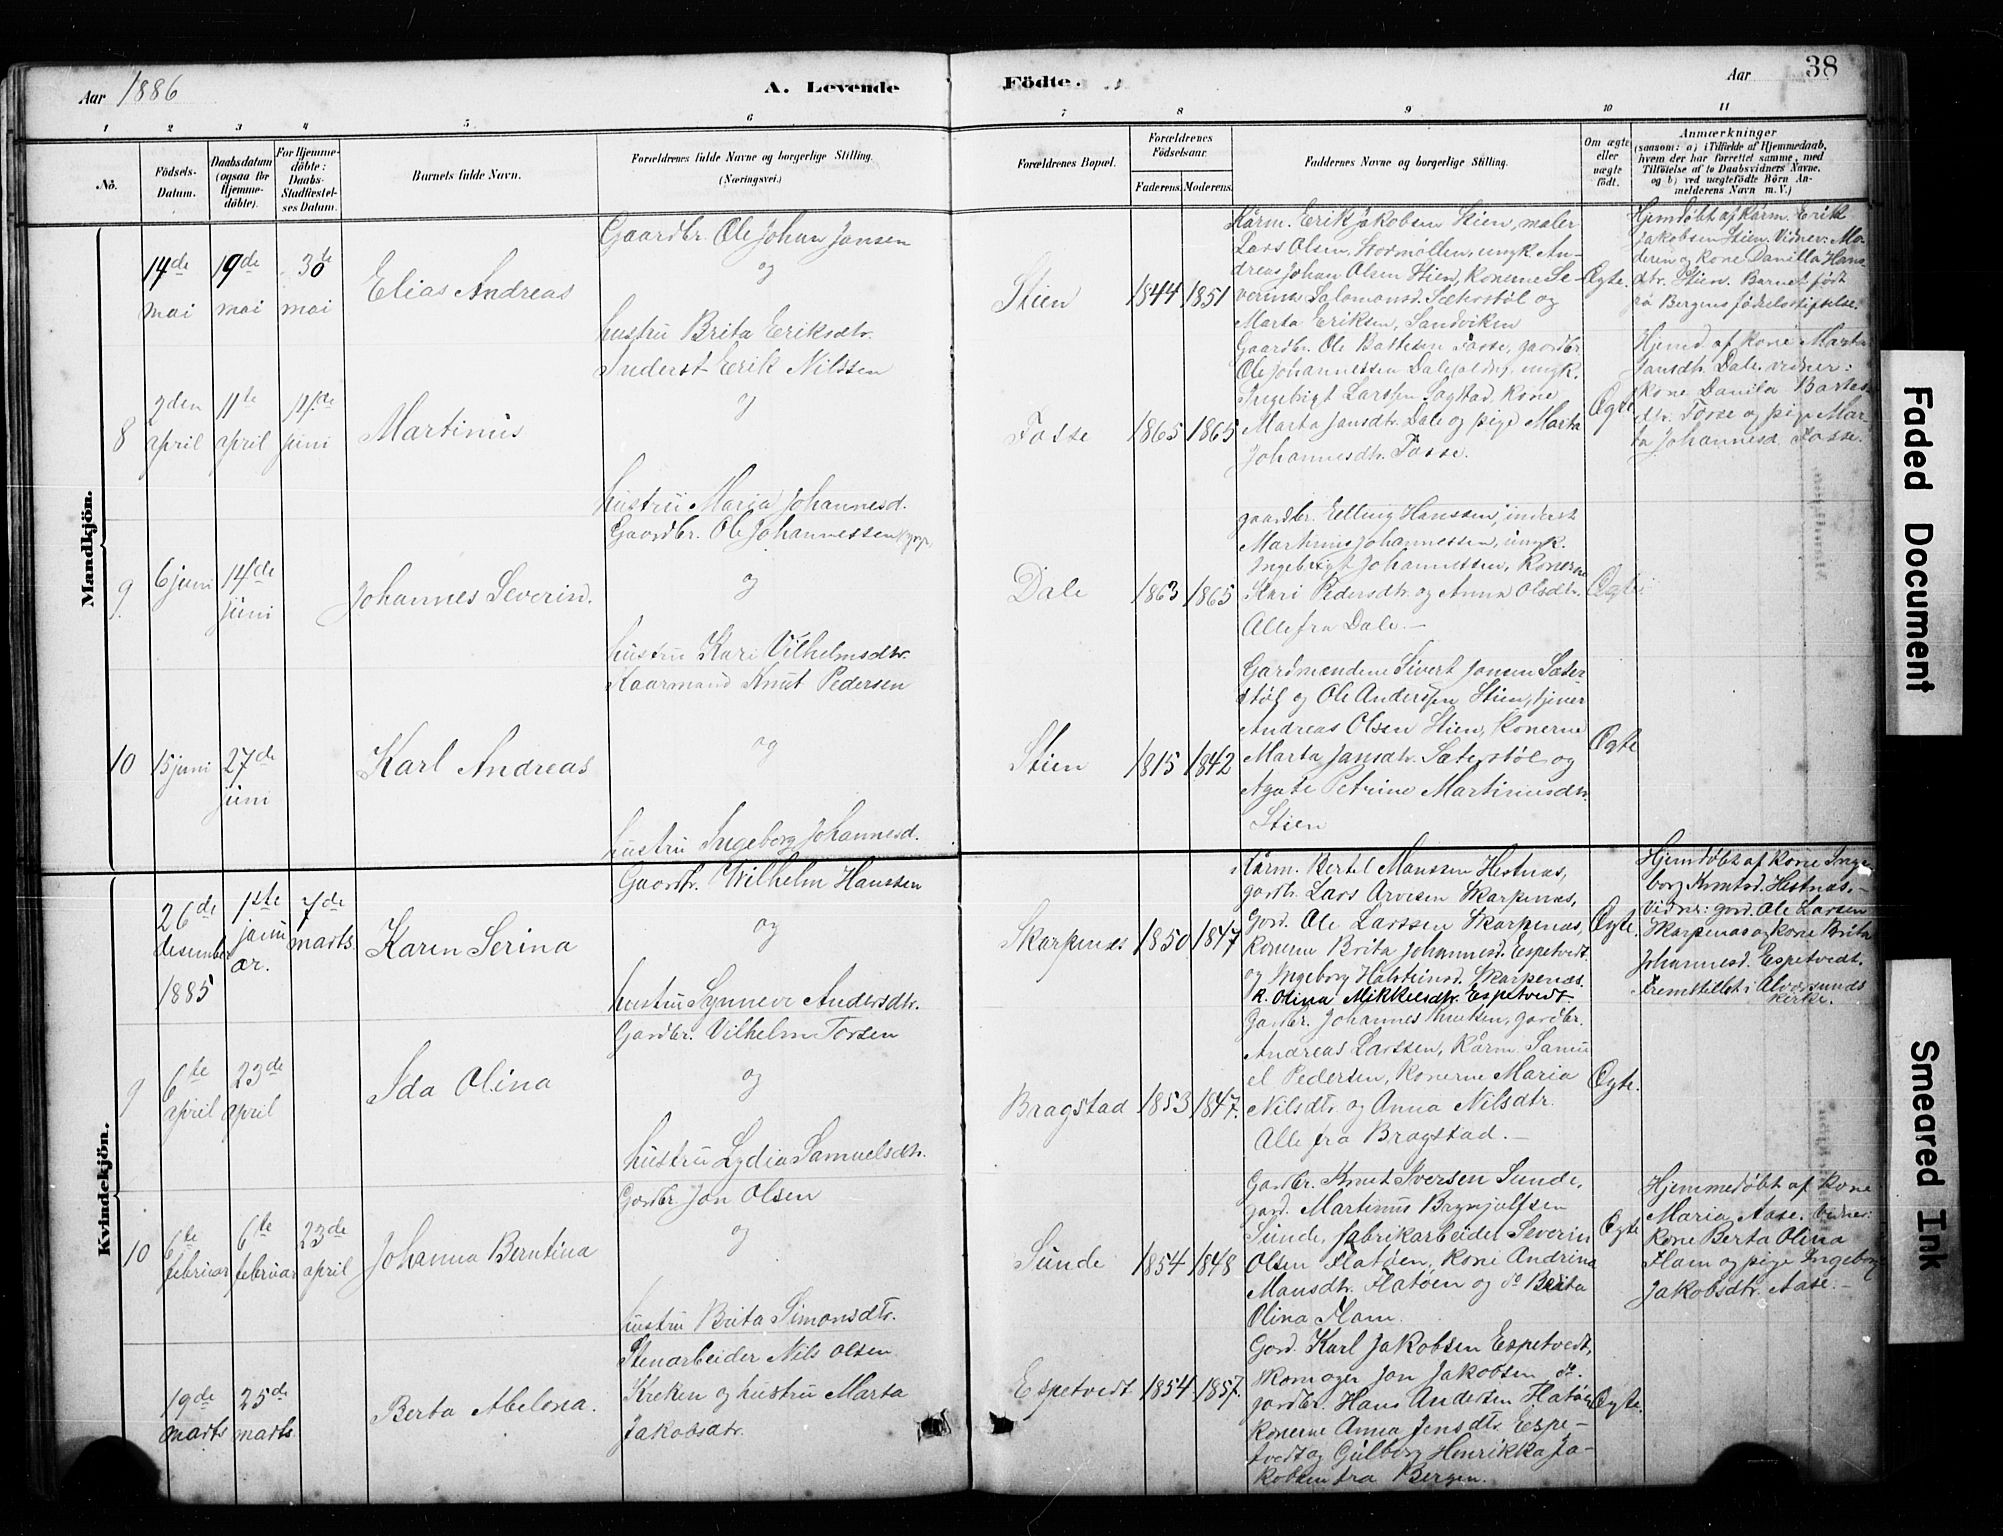 Aar 1886
A. Levende Födte.
Aar
38
1 2 3 4 5 6 7 8 9 10 11
No.
Födsels-Datum.
Daabsdatum (ogsaa for Hjemme-döbte).
For Hjemme-döbte: Daabs-Stadfæstel-ses Datum.
Barnets fulde Navn.
Forældrenes fulde Navne og borgerlige Stilling.
(Næringsvei.)
Forældrenes Bopæl.
Forældrenes Födselsaar.
Faderens. Moderens.
Faddernes Navne og borgerlige Stilling.
Om ægte eller uægte födt.
Anmærkninger
(saasom: a) i Tilfælde af Hjemmedaab,
hvem der har forrettet samme, med
Tilföielse af to Daabsvidners Navne,
og b) ved uægtefödte Börn An-
melderens Navn m. V.)
Mandkjön.
14de mai
19de mai
30te mai
Elias Andreas
Gaardbr. Ole Johan Jansen
og
hustru Brita Eriksdtr.
Stien
1844 1851
Kårm. Erik Jakobsen Stien, maler
Lars Olsen, Stormøllen, ungk. An-
dreas Johan Olsen Stien, Konerne Se-
verina Salomonsd. Sæterstøl og
Marta Eriksen, Sandviken
Ægte.
Hjemdøbt af Kårm. Erik
Jakobsen Stien. Vidner: Mo-
deren og kone Danilla Hans
dtr. Stien. Barnet født
på Bergens fødselsstiftelse.
8
2den april
11te april
11te juni
Martinus
Inderst Erik Nilssen
og
hustru Maria Johannesd.
Fosse
1865 1865
Gaardbr. Ole Battesen Fosse, gaardbr.
Ole Johannessen Dale, ungk.
Ingebrigt Larssen Sagstad, kone
Marta Jansdtr. Dale og pige Marta
Johannesdtr. Fosse.
Ægte
Hjemd. af kone Marta
Jansdtr. Dale. vidner:
kone Danila
dtr. Fosse og pige Mar-
ta Johannesd. Fosse.
9
6 juni
14de juni
Johannes Severin.
Gaardbr. Ole Johannessen
og
hustru Kari Vilhelmsdtr.
Dale
1863 1865
gaardbr. Elling Hanssen, inderst
Martinus Johannessen, ungk.
Ingebrigt Johannessen, Konerne
Kari Pedersdtr. og Anna Olsdtr.
Alle fra Dale. —
Ægte
10
15 juni
27de juni
Karl Andreas
Kaarmand Knut Pedersen
og
hustru Ingeborg Johannesd.
Stien
1815 1842
Gardmændene Sivert Jansen Sæter-
støl og Ole Anderssen Stien, tjener
Andreas Olsen Stien, Konerne
Marta Jansdtr. Sæterstøl og
Agate Petrine Martinusdtr.
Stien
Ægte
Kvindekjön.
26de desember 1885
1ste januar.
7de marts
Karen Serina
Gaardbr. Wilhelm Hanssen
og
hustru Synneve Andersdtr.
Skarpenæs
1850 1847
Kårm. Bertel Manssen Hestnæs,
gardbr. Lars Arvesen Skarpenæs,
Gard. Ole Larssen Skarpenæs,
Konerne Brita Johannesd. Espetvedt
og Ingeborg Halsteinsd. Skarpenæs.
K. Olina Mikkelsdtr. Espetvedt
Ægte.
Hjemdøbt af kone Inge-
borg Knutsd. Hestnæs. —
Vidner: gard. Ole Larsen
Skarpenæs og kone Brita
Johannesd. Espetvedt.
Fremstillet i Alversunds
kirke.
9
6te april
23de april
Ida Olina
Gardbr. Vilhelm Torsen
og
hustru Lydia Samuelsdtr.
Bragstad
1853 1847.
Gardbr. Johannes Knutsen, gardbr.
Andreas Larssen, Kårm. Samu
el Pedersen, Konerne Maria
Nilsdtr. og Anna Nilsdtr.
Alle fra Bragstad. —
Ægte.
10
6te februar
6te februar
23de april
Johanna Berntina
Gardbr. Jon Olsen
og
hustru Brita Simonsdtr.
Sunde
1854 1848
Gardbr. Knut Iversen Sunde,
gard. Martinus Brynjulfsen
Sunde, fabrikarbeider Severin
Olsen Flatøen, Kone Andrina
Mansdtr. Flatøen og do Berta
Olina Flam.
Ægte
Hjemmedøbt af kone
Maria Aase. Vidner:
Kone Berta Olina
Flam og pige Ingeborg
Jakobsdtr. Aase. —
19de marts
25de marts
Berta Abelona.
Stenarbeider Nils Olsen
Kreken og hustru Marta
Jakobsdtr.
Espetvedt
1854 1857.
Gard. Karl Jakobsen Espetvedt,
skomager Jon Jakobsen do.
gardbr. Hans Andersen Flatøen
Konerne Anna Jensdtr. Espe-
tvedt og Gulborg Henrikka Ja-
kobsen fra Bergen.
Ægte.
Faded Document
Smeared Ink